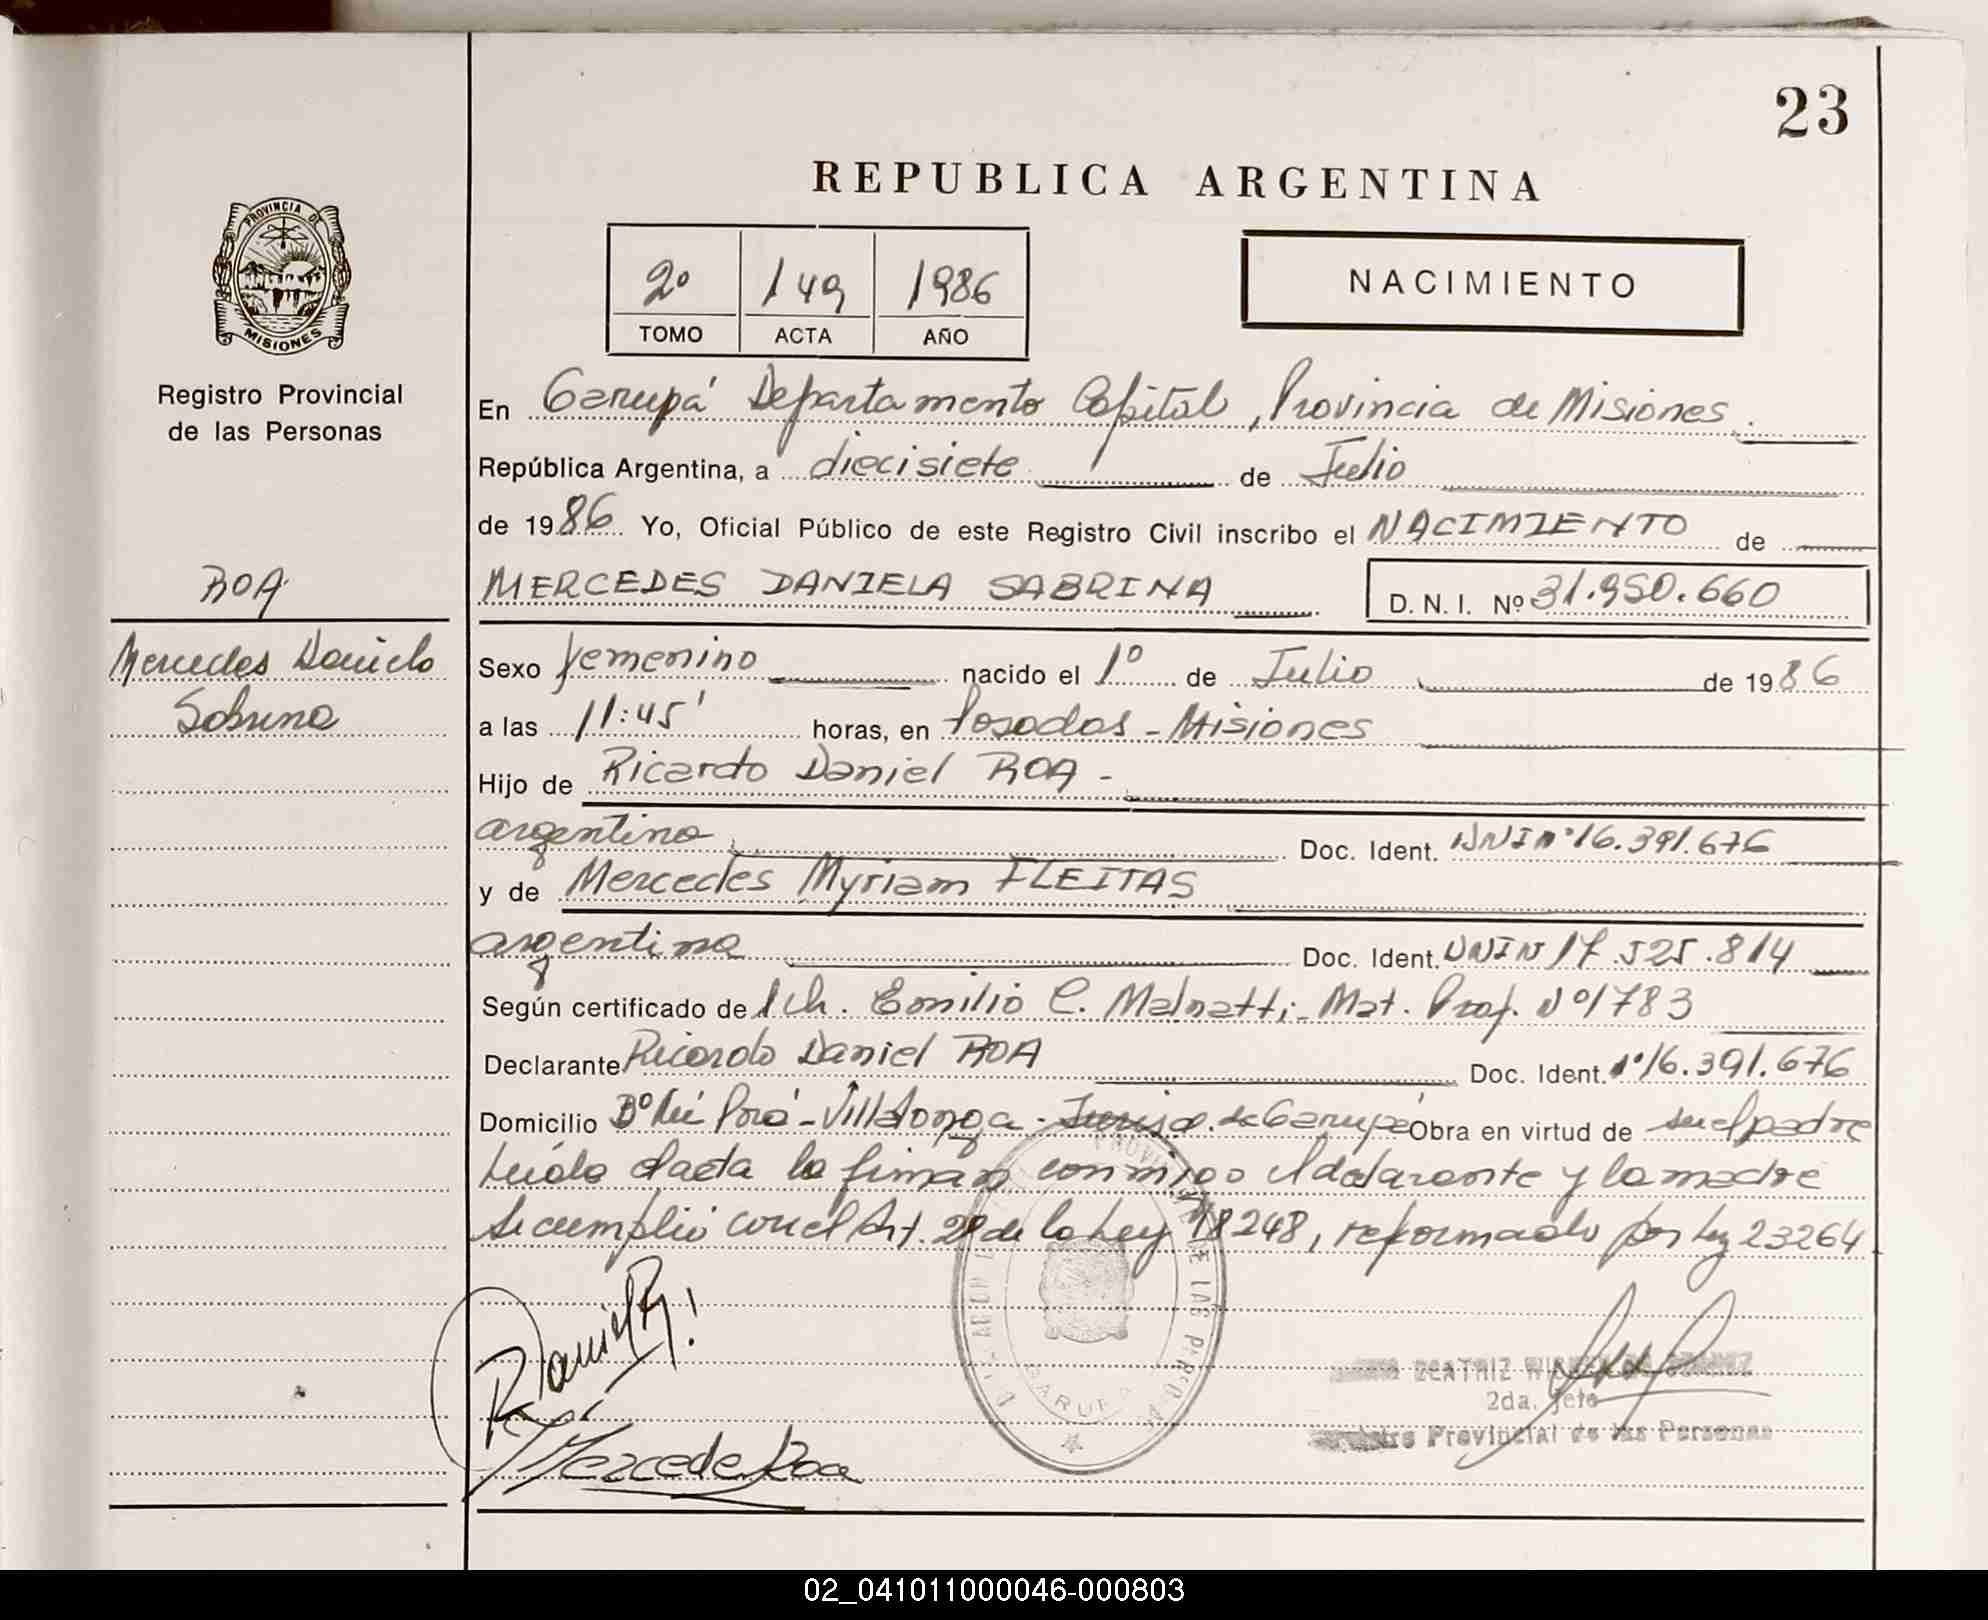 23
REPUBLICA ARGENTINA
PROVINCIA DE
MISIONES
Registro Provincial
de las Personas
2º 149 1986
TOMO ACTA AÑO
NACIMIENTO
En Garupá Departamento Capital, Provincia de Misiones
República Argentina, a diecisiete de Julio
de 1986 Yo, Oficial Público de este Registro Civil inscribo el NACIMIENTO de
ROA
MERCEDES DANIELA SABRINA D.N.I. Nº 31.950.660
Mercedes Daniela
Sabrina
Sexo femenino nacido el 1º de Julio de 1986
a las 11:45' horas, en Posadas - Misiones
Hijo de Ricardo Daniel ROA -
argentino Doc. Ident. DNI Nº 16.391.676
y de Mercedes Myriam FLEITAS
argentina Doc. Ident. DNI N 17.525.814
Según certificado de Emilio C. Malnatti - Mat. Prof. Nº 1783
Declarante Ricardo Daniel ROA Doc. Ident. 16.391.676
Domicilio Bº Porá - Villalonga - de Garupá Obra en virtud de ser el padre
Leída el acta la firman conmigo el declarante y la madre
Se cumplió con el Art. 2º de la Ley 18248, reformado por Ley 23264
Daniel R
Mercede Roa
GARUPA
DE LAS
BEATRIZ
2da. Jefe
Registro Provincial de las Personas
02_041011000046-000803